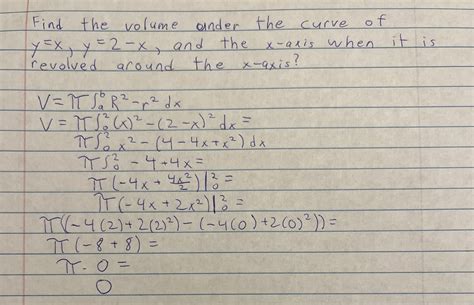 Find the volume under the curve of
y=x, y=2-x, and the x-axis when it is
revolved around the x-axis?
V=π∫ₐᵇ R²-r² dx
V=π∫₀² (x)²-(2-x)² dx =
π∫₀² x²-(4-4x+x²) dx
π∫₀² -4+4x=
π(-4x+4x²/2)|₀²=
π(-4x+2x²)|₀²=
π((-4(2)+2(2)²)-(-4(0)+2(0)²))=
π(-8+8)=
π·0=
0